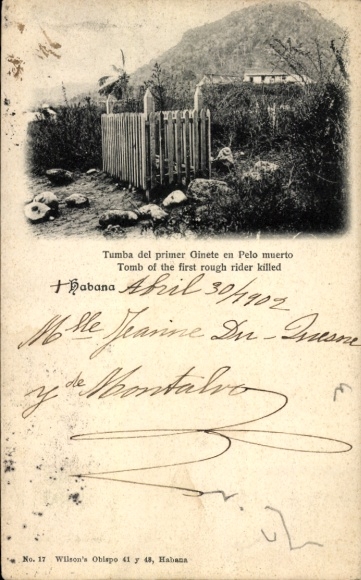 Tumba del primer Ginete en Pelo muerto
Tomb of the first rough rider killed
Habana Abril 30/1902
Mlle Jeanne Du-Quesne
y de Montalvo
No. 17 Wilson's Obispo 41 y 43, Habana